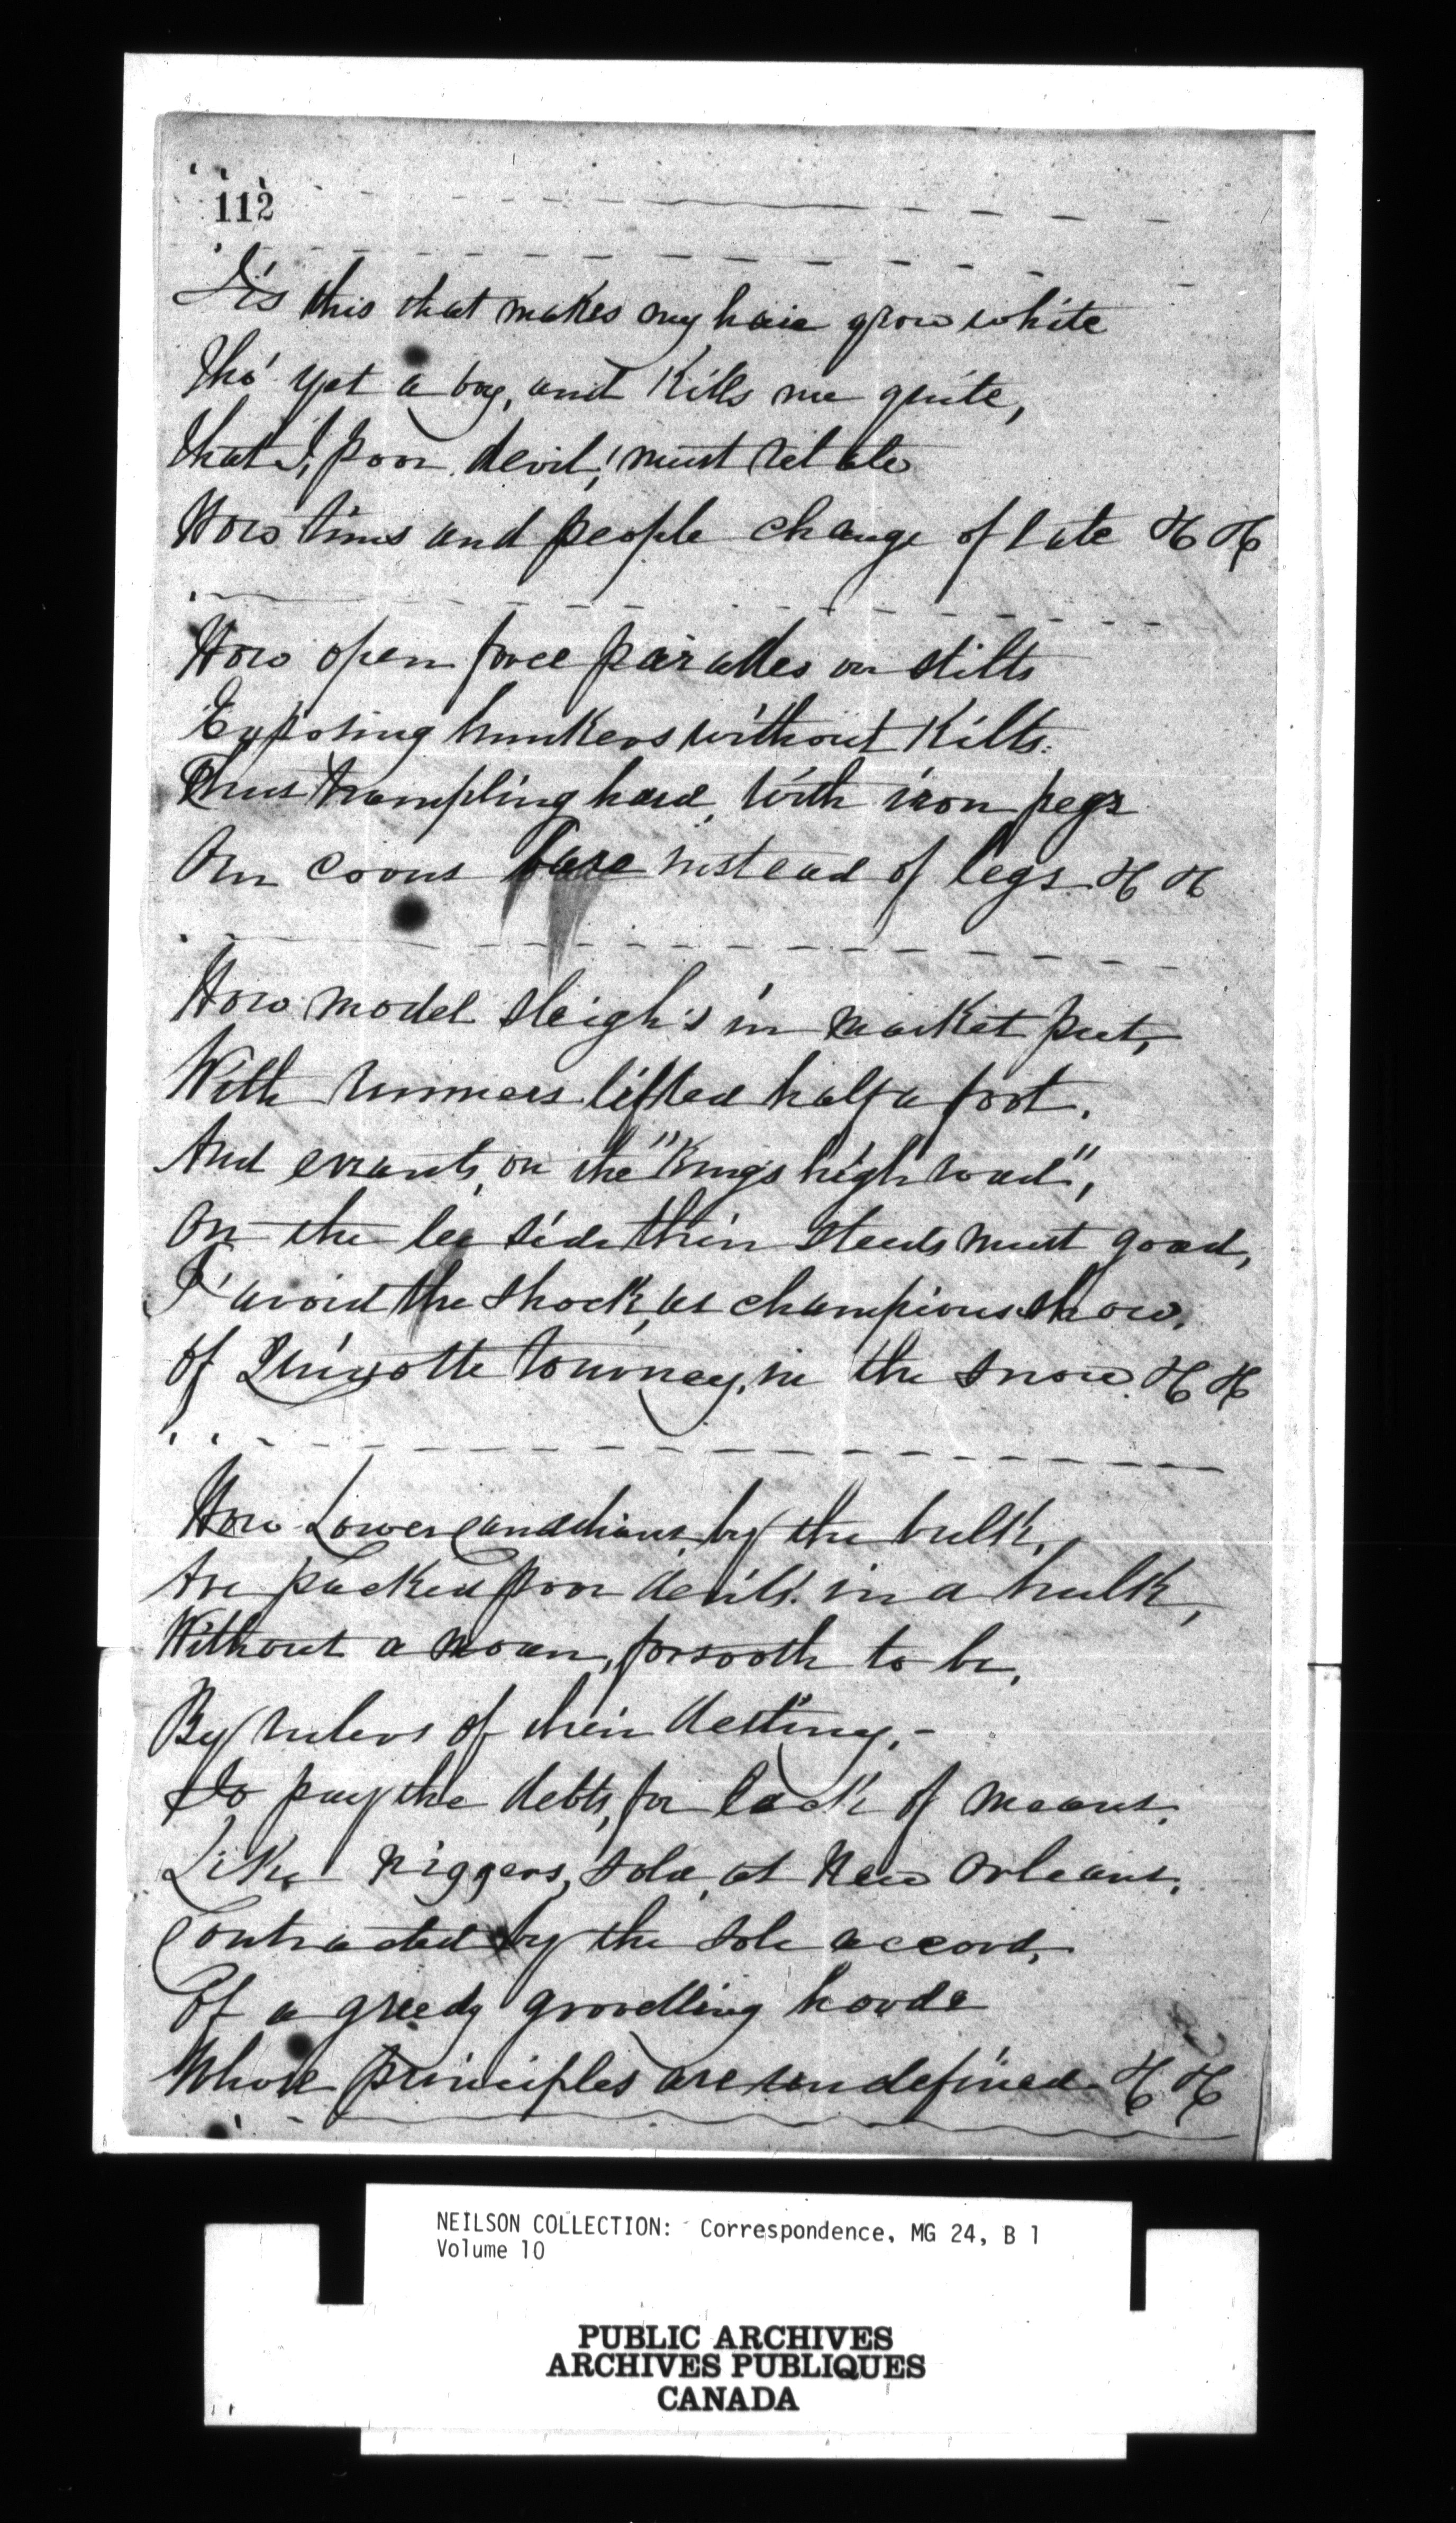 112
'Tis this that makes my hair grow white
Tho' yet a boy, and Kills me quite,
That I, poor devil,! must relate
How times and people change of late
How open force parades on stilts
Exposing hunkers without Kilts.
Thus trampling hard, with iron pegs
On corns bare instead of legs
How model sleigh's in market put,
With runners lifted half a foot,
And errants, on the "King's high road",
On the lee side thin steeds must goad,
T' avoid the shock, as champions show,
Of Quixotte tourney, in the snow.
How Lower Canadians, by the bulk,
Are packed poor devils! in a hulk,
Without a moan, forsooth to be,
By rulers of their destiny, -
To pay the debts, for lack of means,
Like niggers, sold, at New Orleans,
Contracted by the sole accord,
Of a greedy grovelling horde
Whose principles are undefined
NEILSON COLLECTION: Correspondence, MG 24, B 1
Volume 10
PUBLIC ARCHIVES
ARCHIVES PUBLIQUES
CANADA